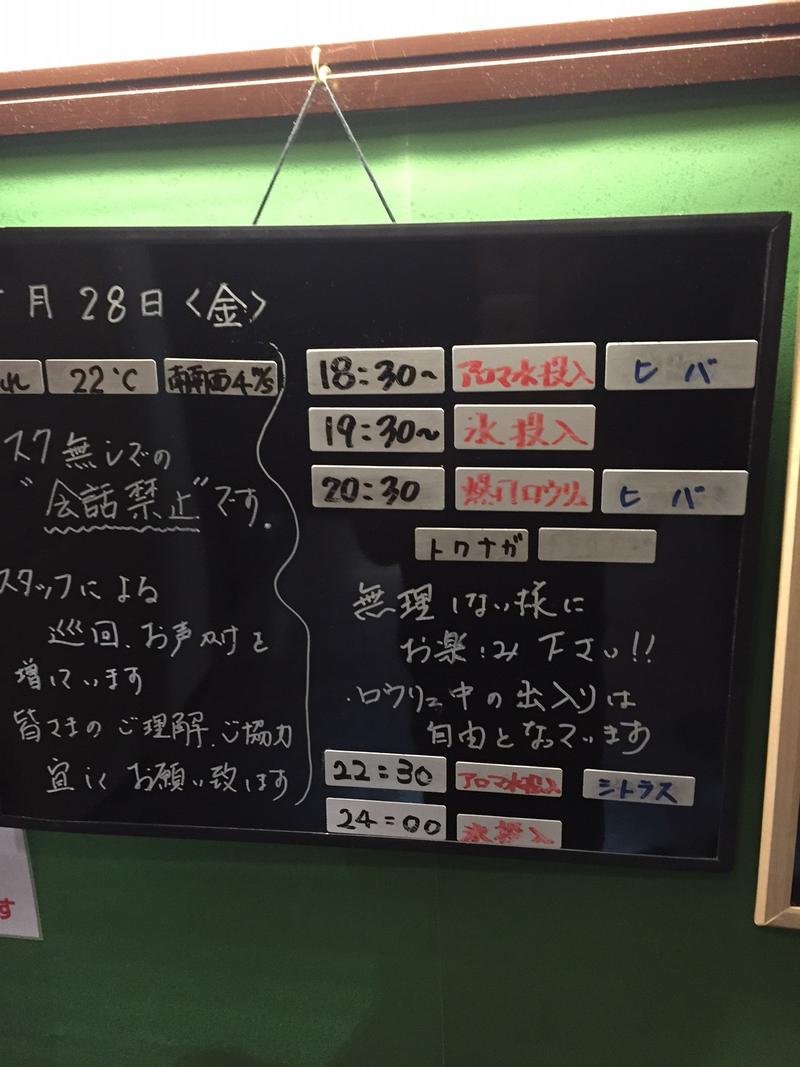 月28日〈金〉
れ 22℃ 南南西4m/s
スク無しでの
"会話禁止"です。
スタッフによる
巡回、お声かけを
増しています
皆さまのご理解、ご協力
宜しくお願い致します
18:30~ アロマ水投入 ヒバ
19:30~ 氷投入
20:30 爆門ロウリュ ヒバ
トクナガ
無理しない様に
お楽しみ下さい!!
・ロウリュ中の出入りは
自由となっています
22:30 アロマ水投入 シトラス
24:00 氷投入
す